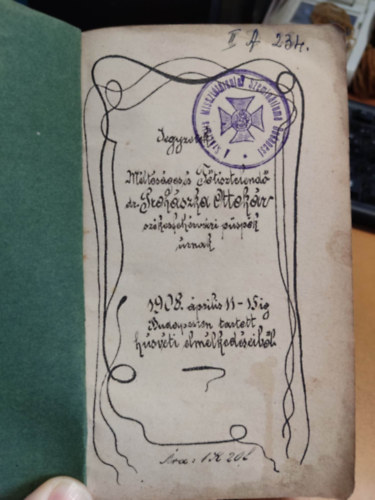 II A 234.
Jegyzetek
Méltóságos és Főtisztelendő
dr. Prohászka Ottokár
székesfehérvári püspök
úrnak
1908. április 11-15ig
Budapesten tartott
húsvéti elmélkedéseiből.
Ára: 1 K 20 f